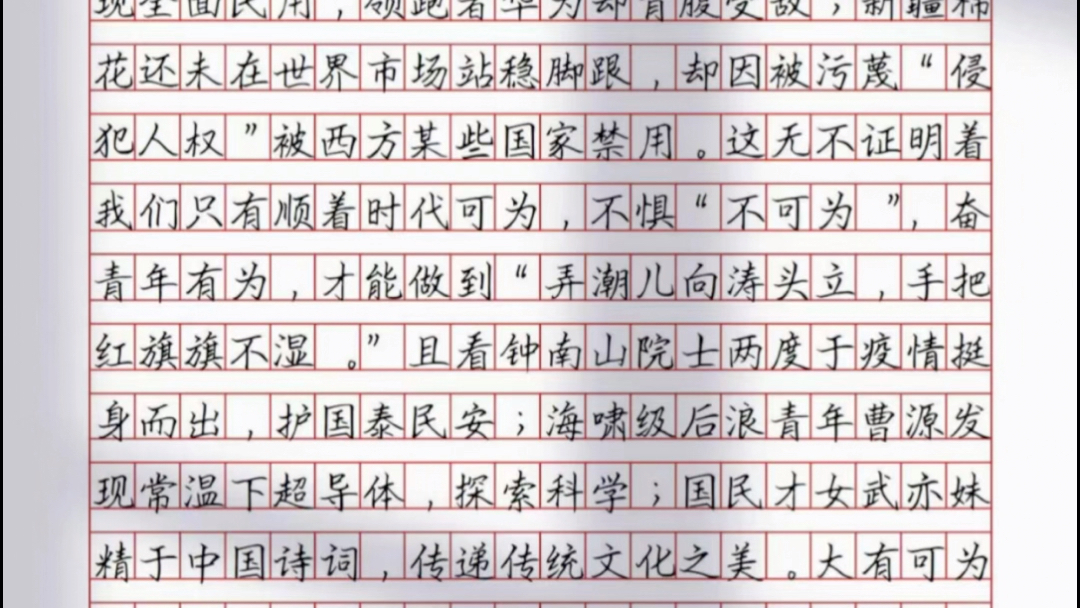 现全面民用，领跑者华为却背腹受敌；新疆棉
花还未在世界市场站稳脚跟，却因被污蔑“侵
犯人权”被西方某些国家禁用。这无不证明着
我们只有顺着时代可为，不惧“不可为”，奋
青年有为，才能做到“弄潮儿向涛头立，手把
红旗旗不湿。”且看钟南山院士两度于疫情挺
身而出，护国泰民安；海啸级后浪青年曹源发
现常温下超导体，探索科学；国民才女武亦妹
精于中国诗词，传递传统文化之美。大有可为